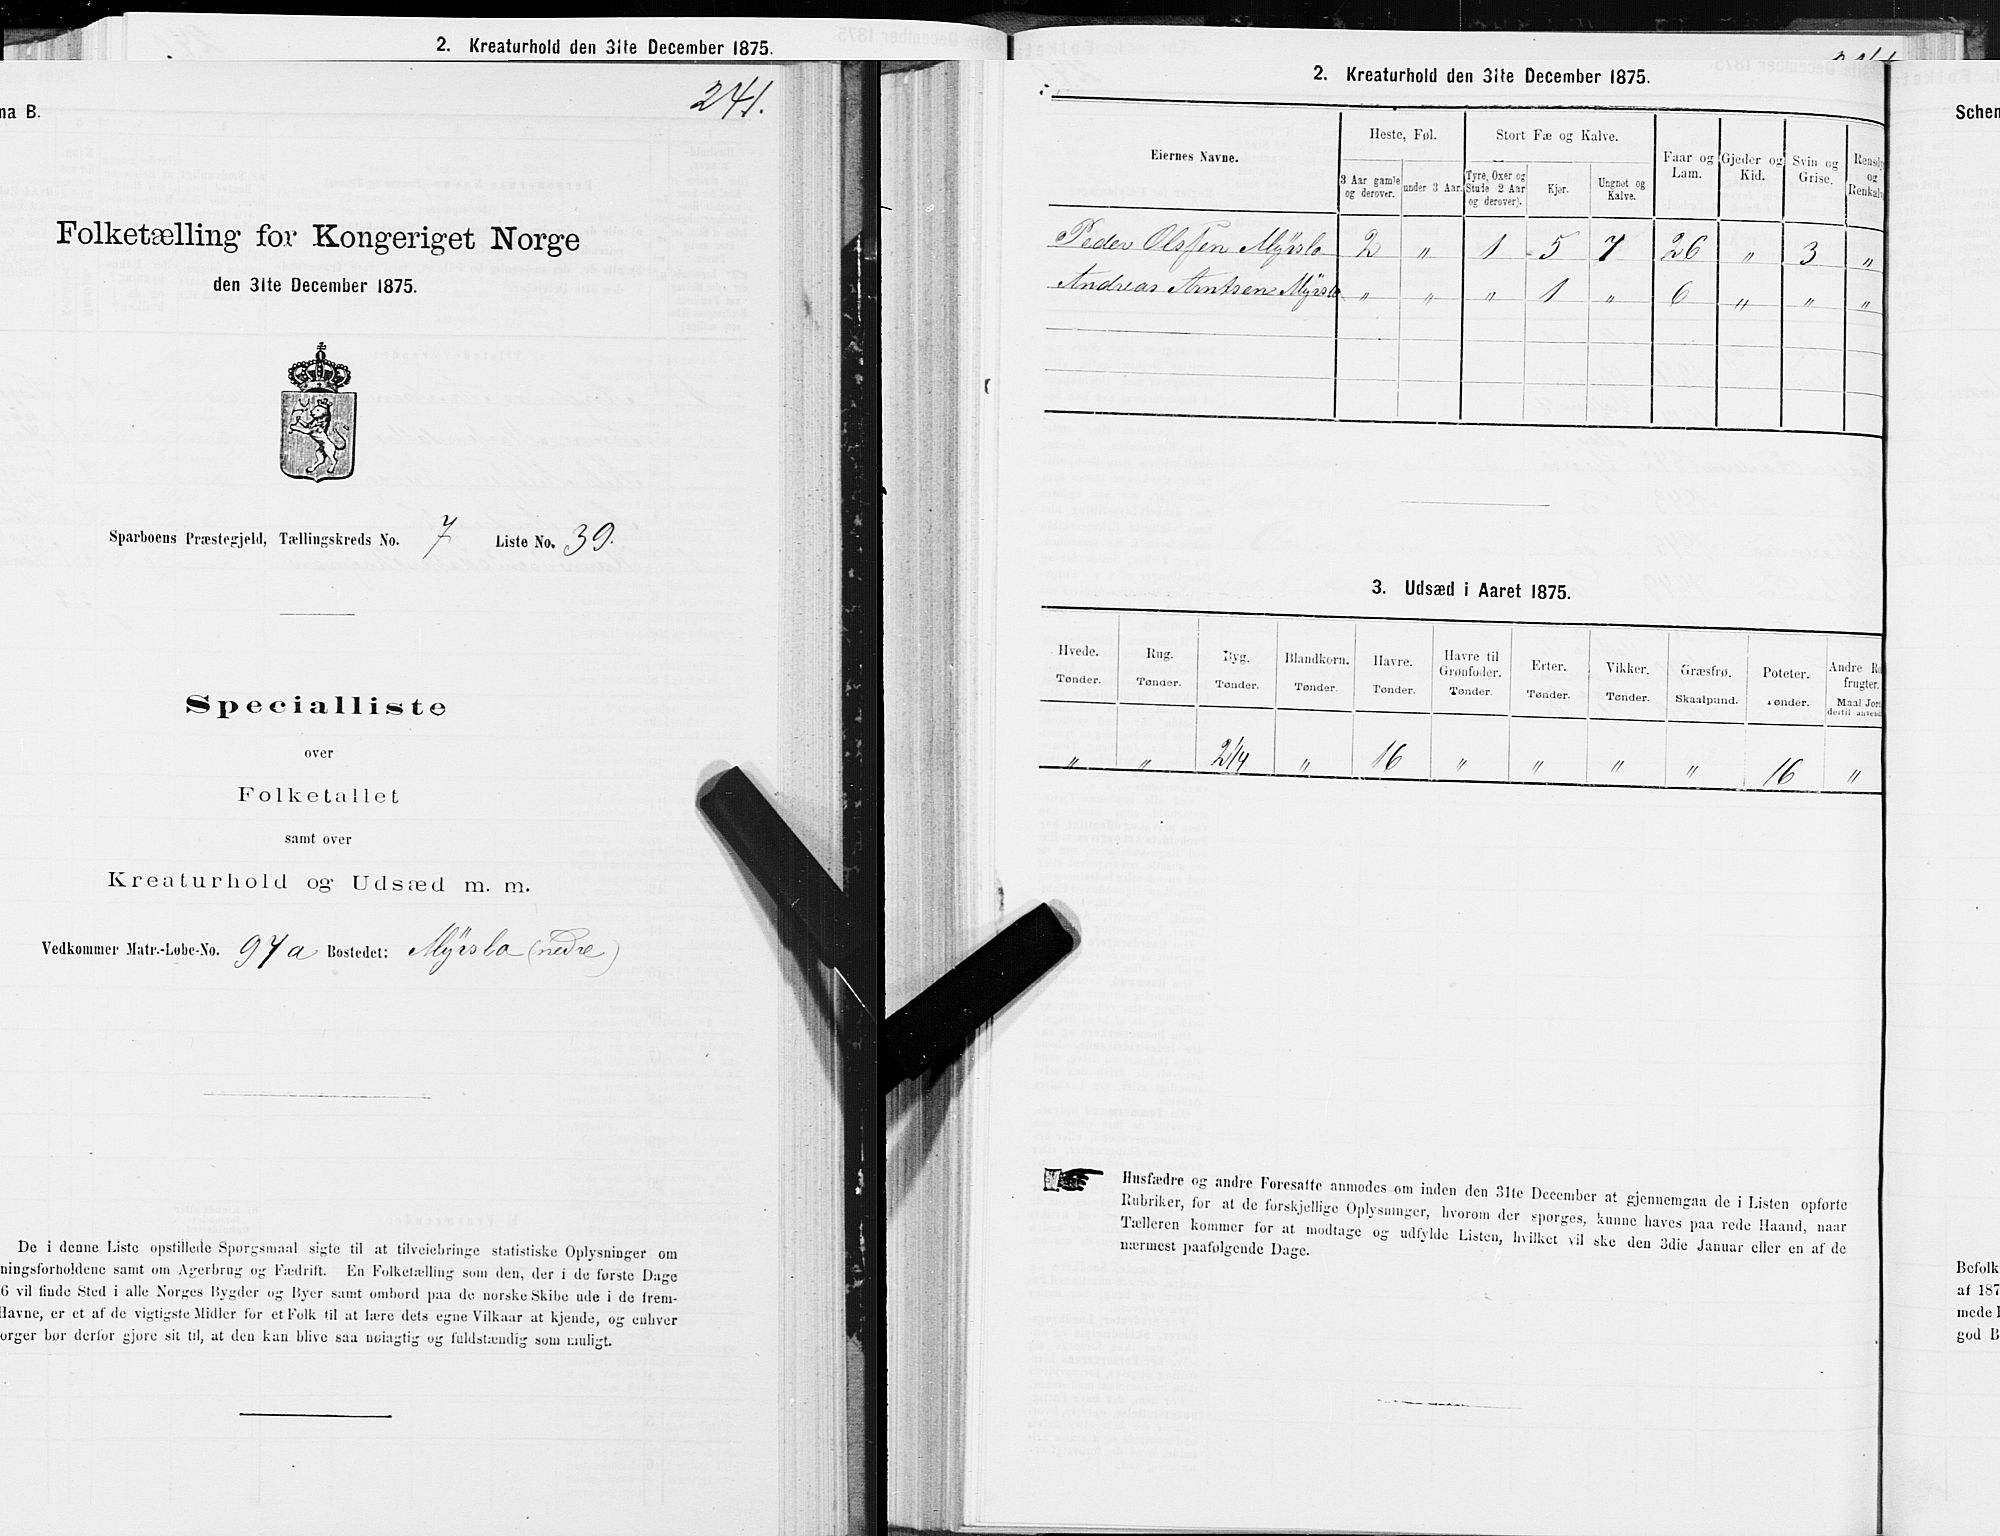 2. Kreaturhold den 31te December 1875.
241.
ma B.
Folketælling for Kongeriget Norge
den 31te December 1875.
Sparboens Præstegjeld, Tællingskreds No. 7 Liste No. 39.
Specialliste
over
Folketallet
samt over
Kreaturhold og Udsæd m. m.
Vedkommer Matr.-Løbe-No. 97a Bostedet: Myrslo (nedre)
De i denne Liste opstillede Spørgsmaal sigte til at tilveiebringe statistiske Oplysninger om
ningsforholdene samt om Agerbrug og Fædrift. En Folketælling som den, der i de første Dage
6 vil finde Sted i alle Norges Bygder og Byer samt ombord paa de norske Skibe ude i de frem-
Havne, er et af de vigtigste Midler for et Folk til at lære dets egne Vilkaar at kjende, og enhver
orger bør derfor gjøre sit til, at den kan blive saa nøiagtig og fuldstændig som muligt.
2. Kreaturhold den 31te December 1875.
Eiernes Navne.
Heste, Føl.
3 Aar gamle og derover.
under 3 Aar.
Stort Fæ og Kalve.
Tyre, Oxer og Stude (2 Aar og derover).
Kjør.
Ungnøt og Kalve.
Faar og Lam.
Gjeder og Kid.
Svin og Grise.
Rensdy og Renkalv
Peder Olssen Myrslo 2 " 1 5 7 26 " 3 "
Andreas Arntsen Myrslo " " " 1 " 6 " " "
3. Udsæd i Aaret 1875.
Hvede. Rug. Byg. Blandkorn. Havre. Havre til Grønfoder. Erter. Vikker. Græsfrø. Poteter. Andre Ro frugter.
Tønder. Tønder. Tønder. Tønder. Tønder. Tønder. Tønder. Tønder. Skaalpund. Tønder. Maal Jor dertil anvend
" " 2 1/4 " 16 " " " " 16 "
Husfædre og andre Foresatte anmodes om inden den 31te December at gjennemgaa de i Listen opførte
Rubriker, for at de forskjellige Oplysninger, hvorom der spørges, kunne haves paa rede Haand, naar
Tælleren kommer for at modtage og udfylde Listen, hvilket vil ske den 3die Januar eller en af de
nærmest paafølgende Dage.
Schem
Befolk
af 187
mede H
god B